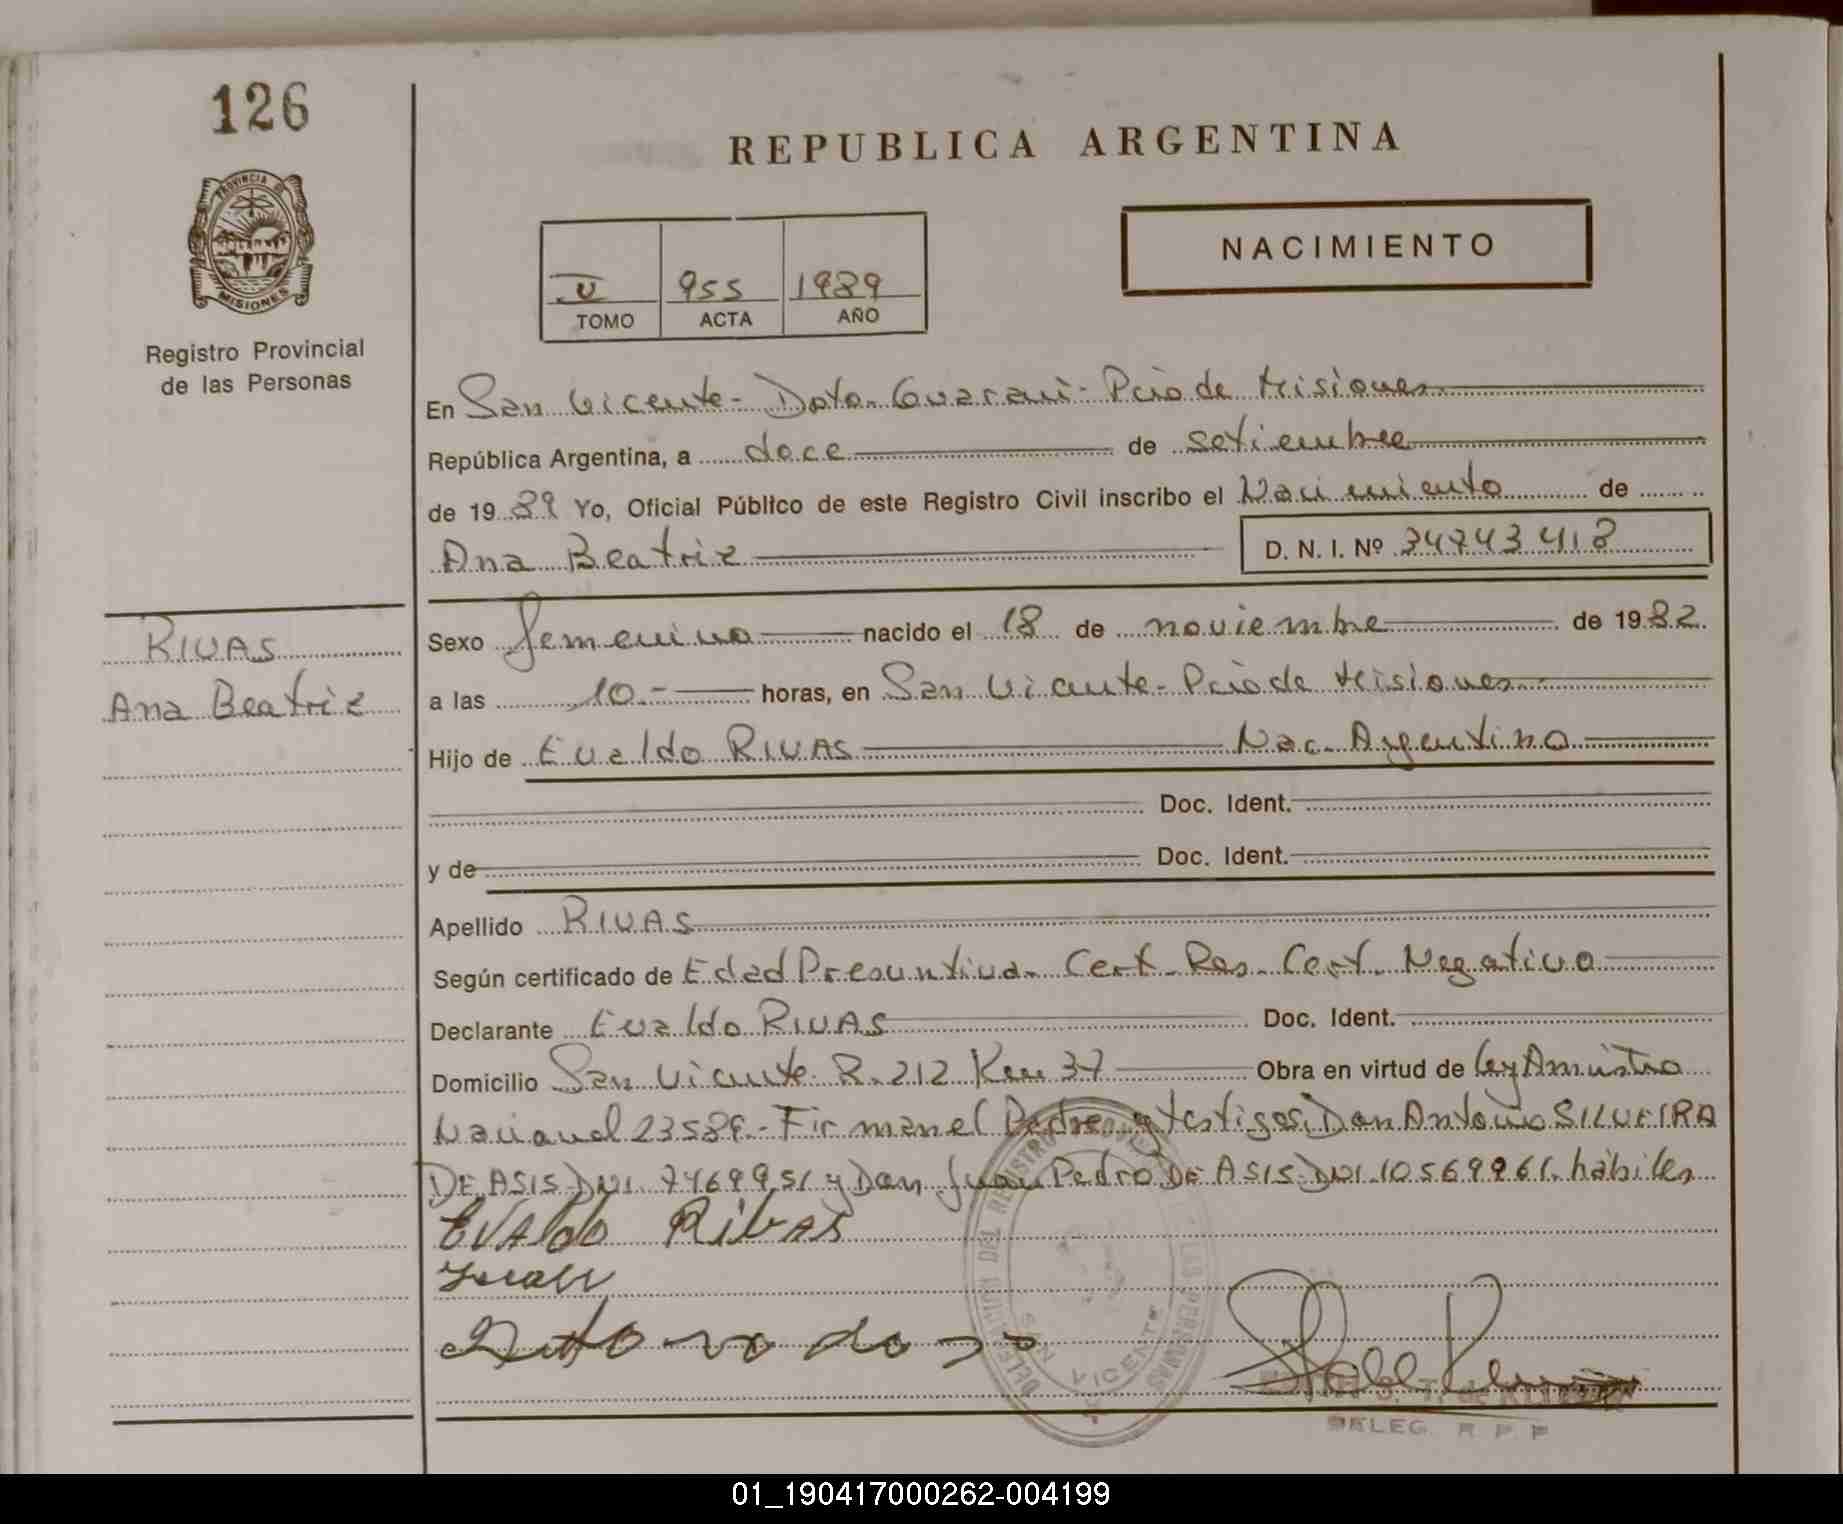 126
REPUBLICA ARGENTINA
PROVINCIA DE
MISIONES
Registro Provincial
de las Personas
V 955 1989
TOMO ACTA AÑO
NACIMIENTO
En San Vicente - Dpto. Guaraní - Pcia de Misiones
República Argentina, a doce de setiembre
de 1989 Yo, Oficial Público de este Registro Civil inscribo el Nacimiento de
Ana Beatriz D. N. I. Nº 34743418
RIVAS
Ana Beatriz
Sexo femenino nacido el 18 de noviembre de 1982.
a las 10.- horas, en San Vicente - Pcia de Misiones
Hijo de Evaldo RIVAS Nac. Argentino
Doc. Ident.
y de Doc. Ident.
Apellido RIVAS
Según certificado de Edad Presuntiva. Cert. Res. Cert. Negativo
Declarante Evaldo RIVAS Doc. Ident.
Domicilio San Vicente R. 212 Km 37 Obra en virtud de ley Amnistia
Nacional 23589.- Firman el Padre y testigos: Don Antonio SILVEIRA
DE ASIS DNI. 7469951 y Don Juan Pedro DE ASIS DNI. 10569961. hábiles
EVAldo RibAS
SAN VICENTE
DELEG. R P P
01_190417000262-004199